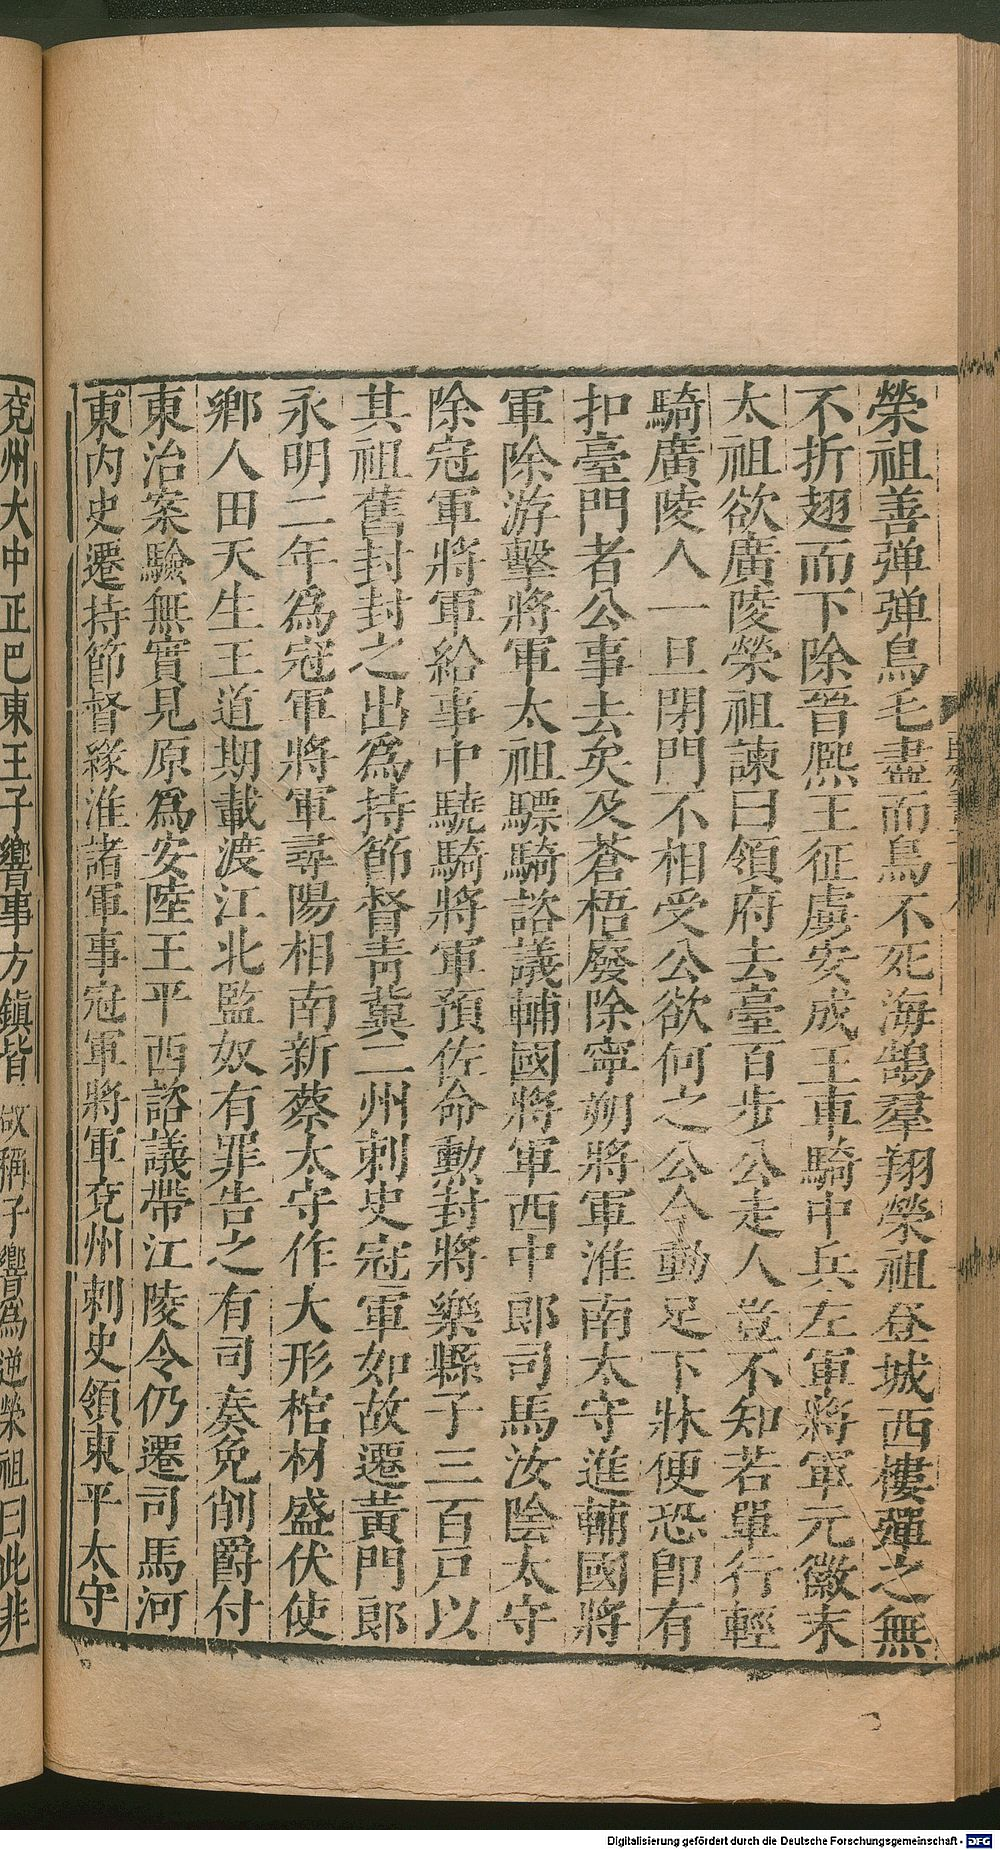 榮祖善弹弹鳥毛盡而鳥不死海鵠羣翔榮祖登城西樓彈之無
不折翅而下除晉熙王征虜安成王車騎中兵左軍將軍元徽末
太祖欲廣陵榮祖諫曰領府去臺百步公走人豈不知若單行輕
騎廣陵人一旦閉門不相受公欲何之公今動足下牀便恐卽有
扣臺門者公事去矣及蒼梧廢除寧朔將軍淮南太守進輔國將
軍除游擊將軍太祖驃騎諮議輔國將軍西中郎司馬汝陰太守
除冠軍將軍給事中驍騎將軍預佐命勲封將樂縣子三百戸以
其祖舊封封之出爲持節督靑冀二州刺史冠軍如故遷黃門郎
永明二年爲冠軍將軍尋陽相南新蔡太守作大形棺材盛伏使
鄉人田天生王道期載渡江北監奴有罪告之有司奏免削爵付
東治案驗無實見原爲安陸王平西諮議帶江陵令仍遷司馬河
東內史遷持節督緣淮諸軍事冠軍將軍兗州刺史領東平太守
兗州大中正巴東王子響事方鎮皆啟稱子響為逆榮祖曰此非
Digitalisierung gefördert durch die Deutsche Forschungsgemeinschaft - DFG